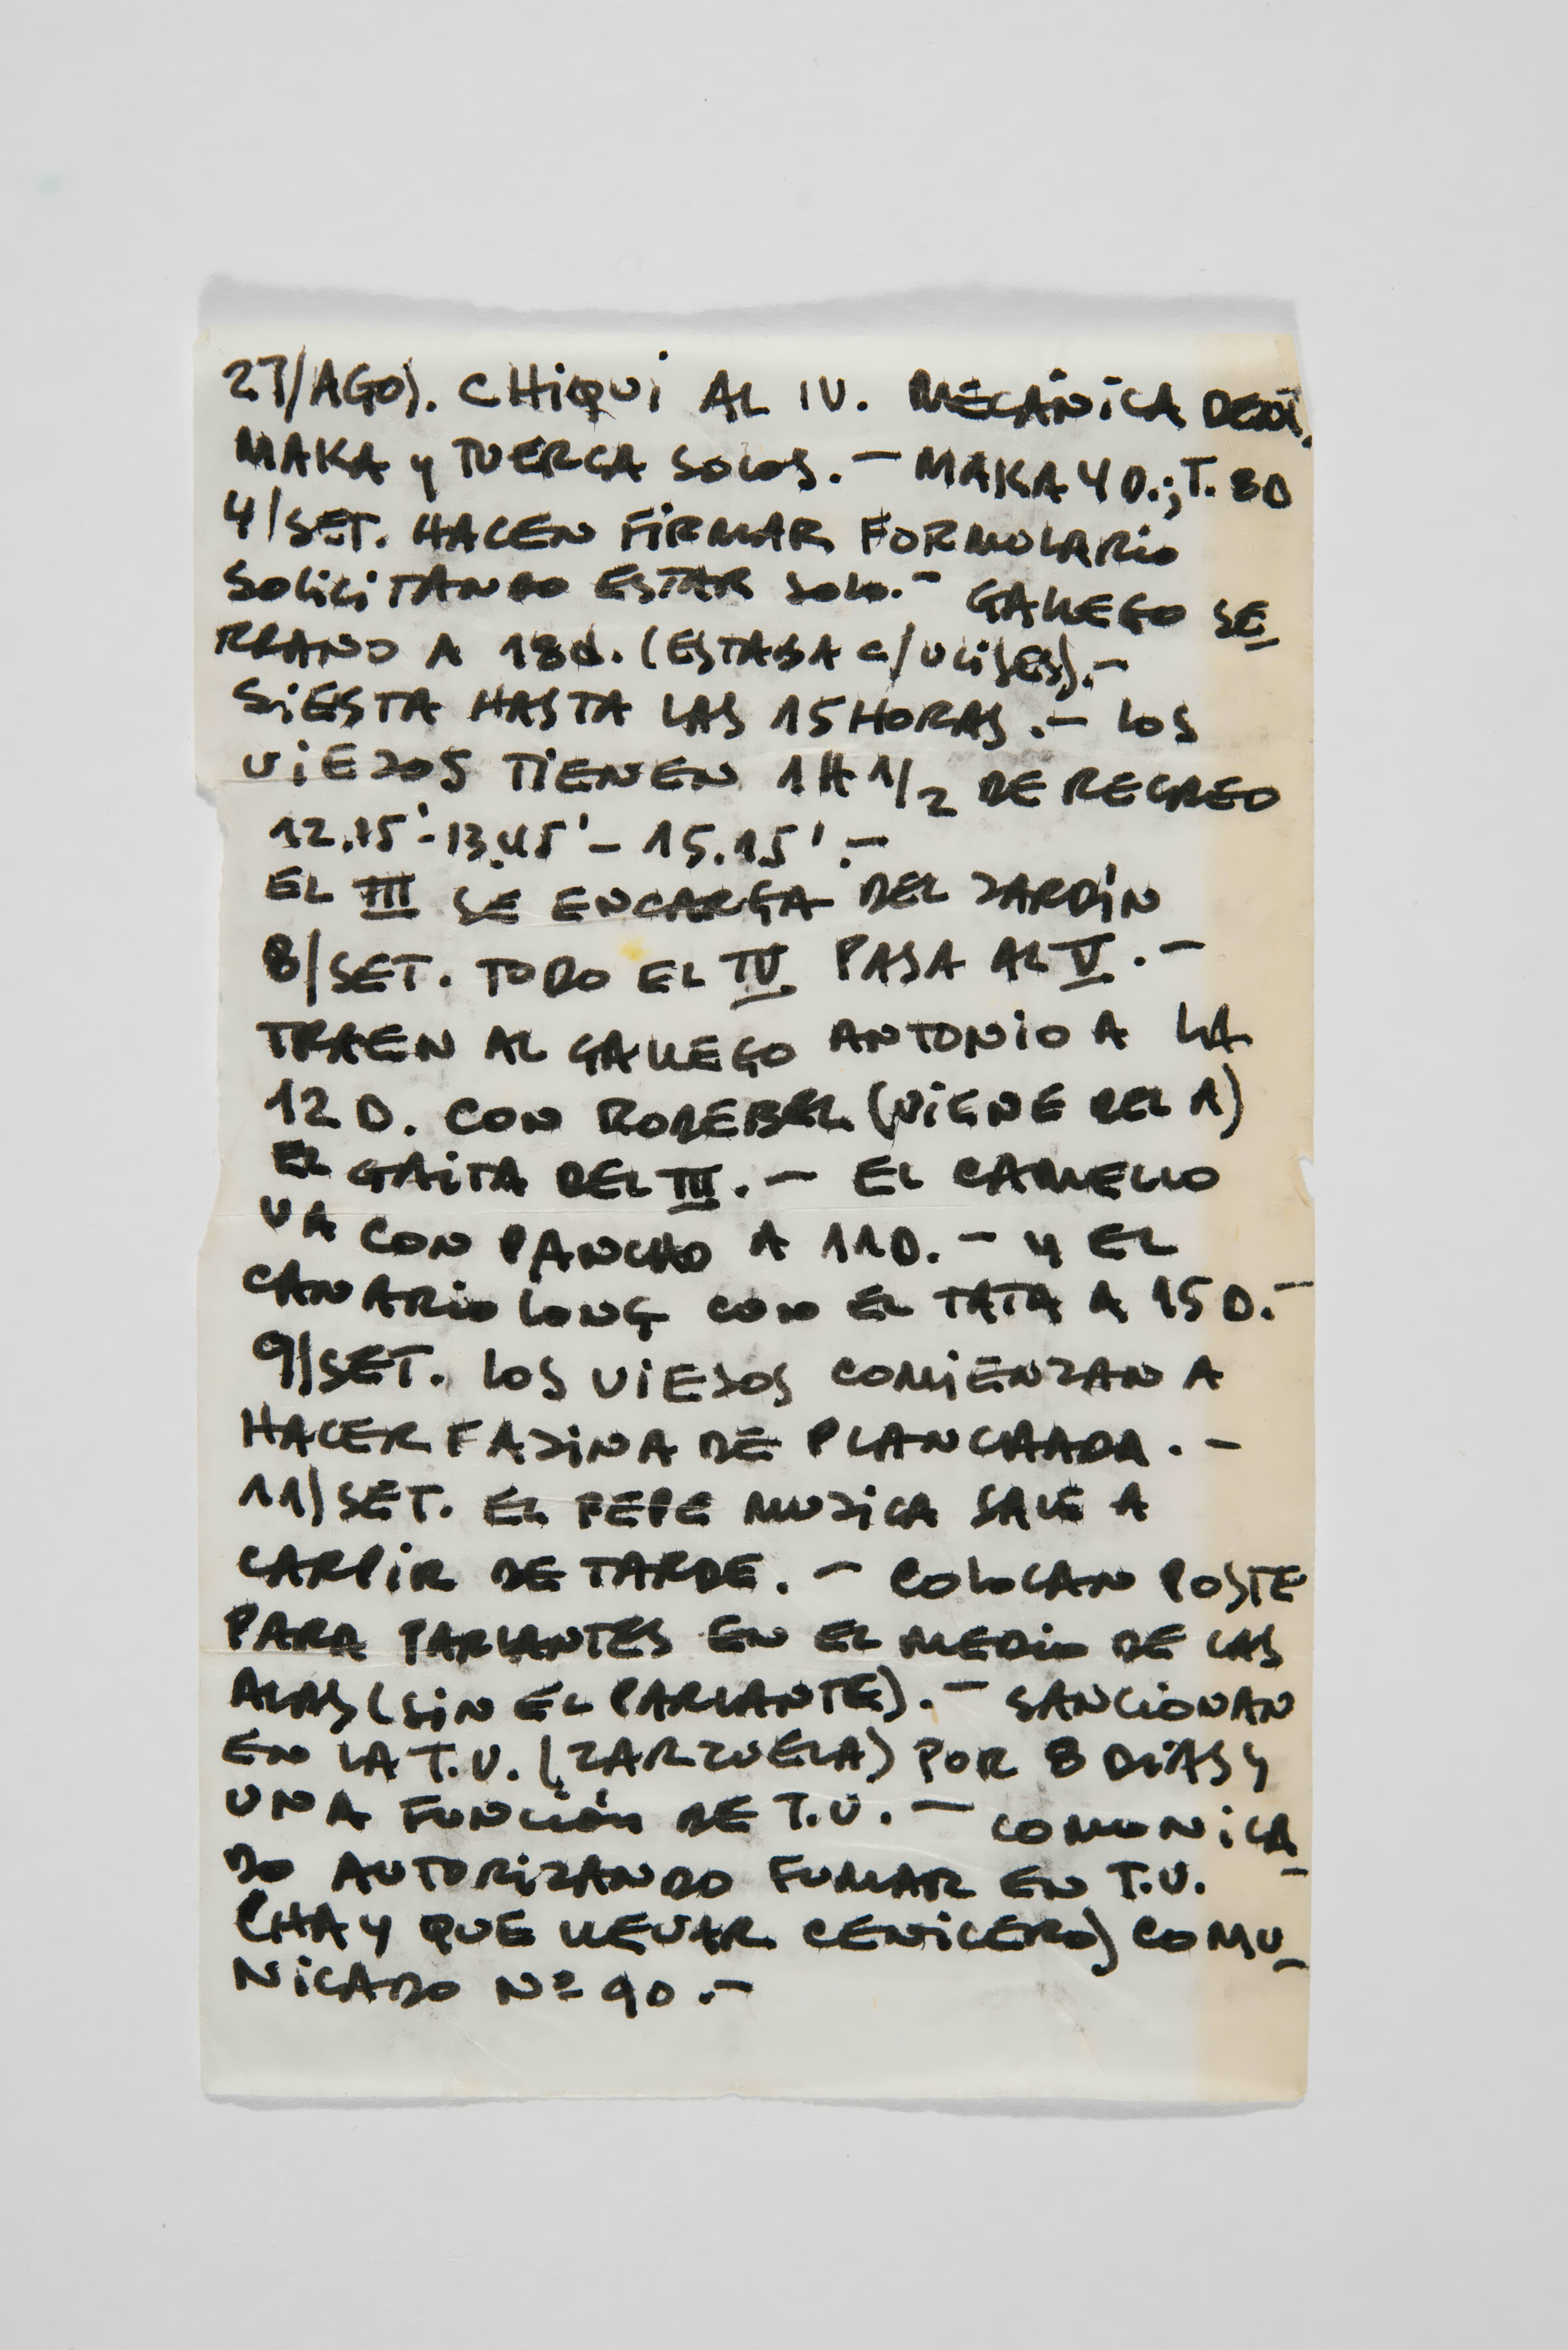 27/AGO). CHIQUI AL IV. MECÁNICA
MAKA Y TUERCA SOLOS.- MAKA 4 D.; T. 8D
4/SET. HACEN FIRMAR FORMULARIO
SOLICITANDO ESTAR SOLO.- GALLEGO SE
RRANO A 18d. (ESTABA C/ULISES).-
SIESTA HASTA LAS 15 HORAS.- LOS
VIEJOS TIENEN 1H 1/2 DE RECREO
12.15'-13.45'- 15.15'.-
EL III SE ENCARGA DEL JARDÍN
8/SET. TODO EL IV PASA AL V.-
TRAEN AL GALLEGO ANTONIO A LA
12 D. CON (VIENE DEL A)
EL GAITA DEL III.- EL CAMELLO
VA CON PANCHO A 11D.- Y EL
CANARIO LONG CON EL TATA A 15 D.-
9/SET. LOS VIEJOS COMIENZAN A
HACER FAJINA DE PLANCHADA.-
11/SET. EL PEPE MUJICA SALE A
CARPIR DE TARDE.- COLOCAN POSTE
PARA PARLANTES EN EL MEDIO DE LAS
ALAS (SIN EL PARLANTE).- SANCIONAN
EN LA T.V. (ZARZUELA) POR 8 DÍAS Y
UNA FUNCIÓN DE T.V.- COMUNICA-
DO AUTORIZANDO FUMAR EN T.V.
(HAY QUE LLEVAR CENICERO) COMU-
NICADO Nº 90.-